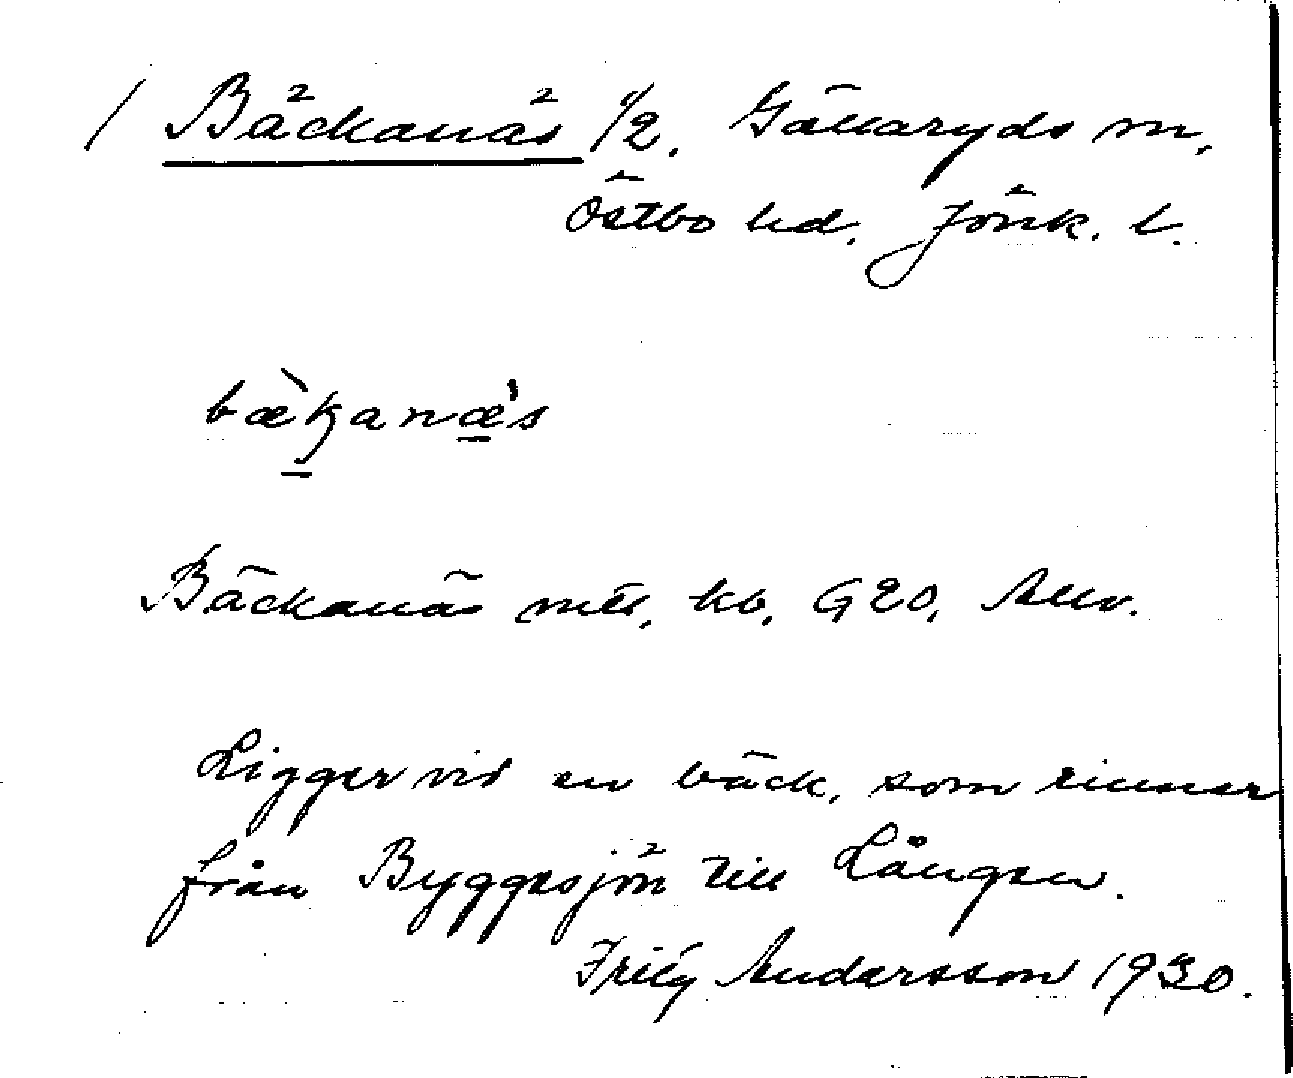 / Bäckanäs 1/2. Gällaryds sn,
Östbo hd. Jönk. l.
bæ̀kanæ's
Bäckanäs mtl, kb. G20,
Ligger vid en bäck, som rinner
från Byggesjön till Lången.
Andersson 1930.